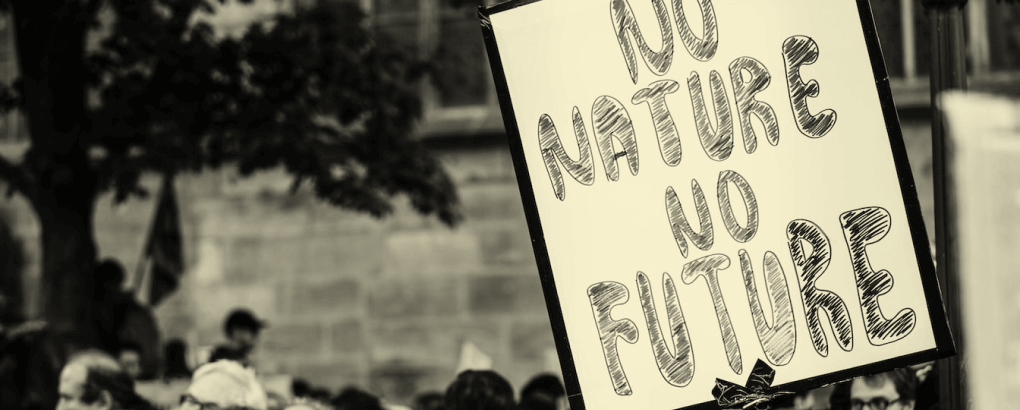 NO
NATURE
NO
FUTURE